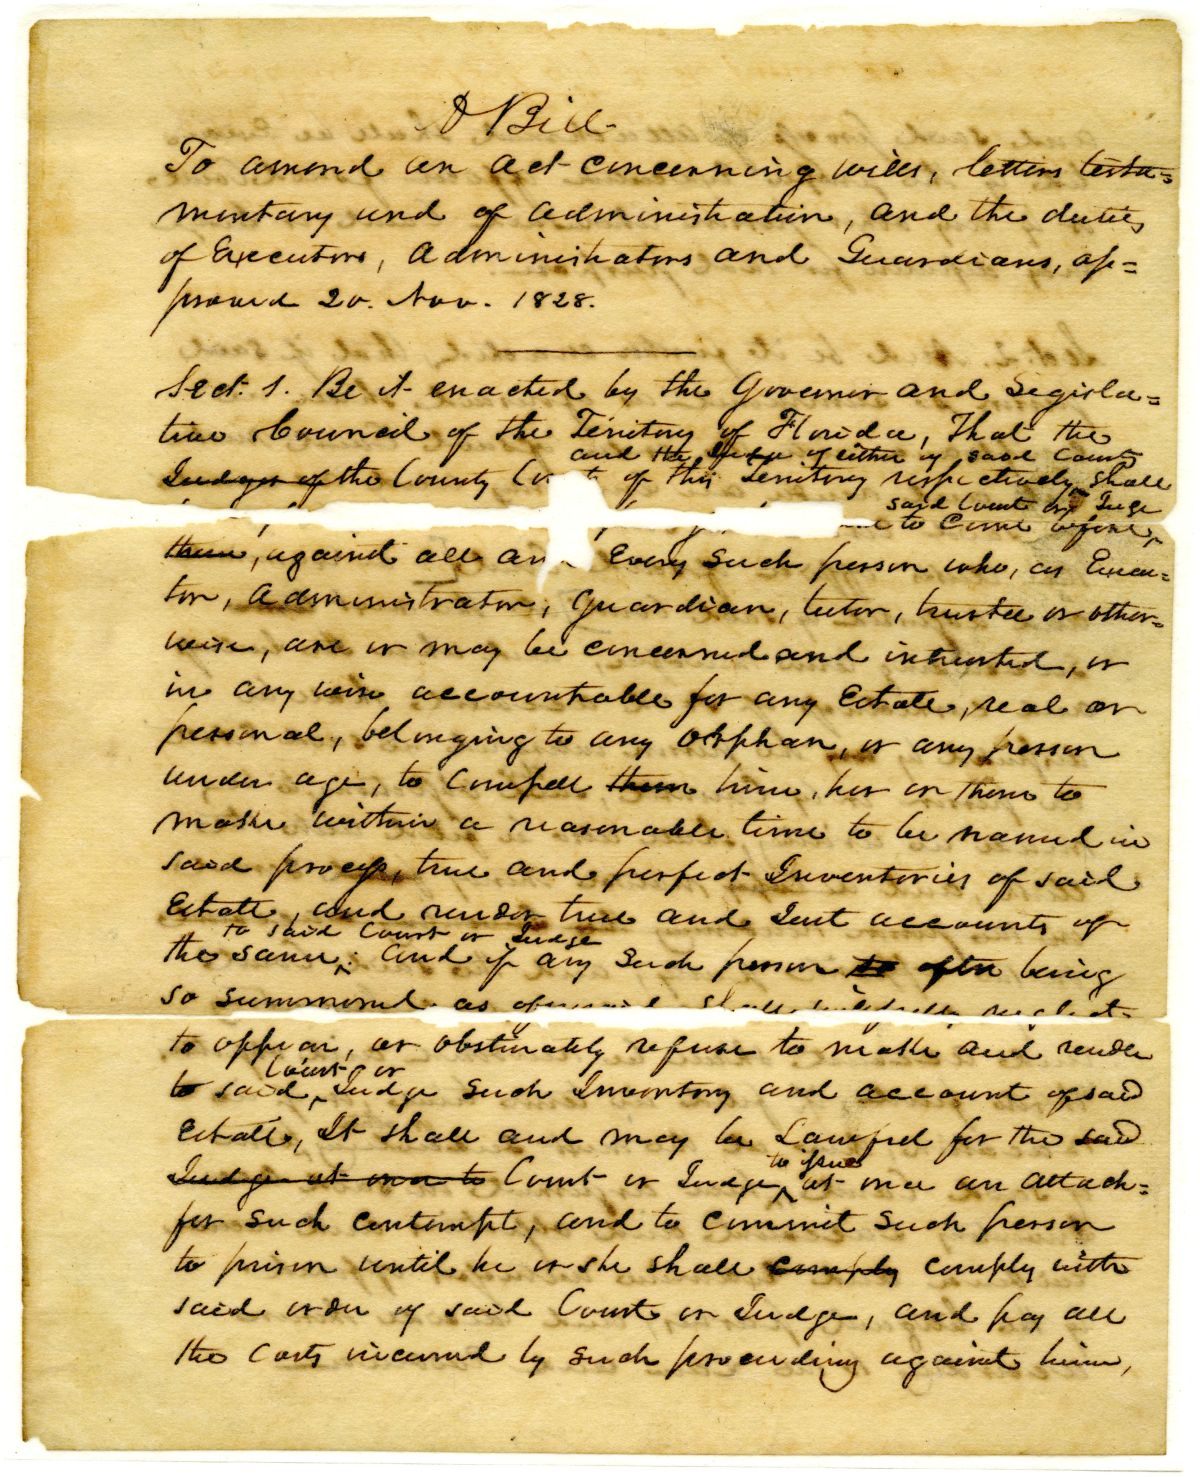 A Bill
To amend an act concerning wills, letters testa=
mentary and of administration, and the duties
of Executors, Administrators and Guardians, ap=
proved 20. Nov. 1828.
Sect. 1. Be it enacted by the Governor and Legisla=
tive Council of the Territory of Florida, That the
and the Judge of either of said Courts
Judges of the County of this Territory respectively shall
said Court or Juge
to come before
them, against all Every such person who, as Execu=
tor, Administrator, Guardian, tutor, trustee or other=
wise, are or may be concerned and intrusted, or
in any wise accountable for any Estate, real or
personal, belonging to any orphan, or any person
under age, to compell them him, her or them to
make within a reasonable time to be named in
said process, true and perfect Inventories of said
Estate, and render true and Just accounts of
to said Court or Judge
the same; and if any such person to after being
so summoned as shall neglect
to appear, or obstinately refuse to make and render
Court or
to said Judge such Inventory and account of said
Estate, It shall and may be Lawful for the said
to issue
Judge at once to Court or Judge, at once an attach=
for such contempt, and to commit such person
to prison until he or she shall comply comply with
said order of said Court or Judge, and pay all
the costs incurred by such proceeding against him,